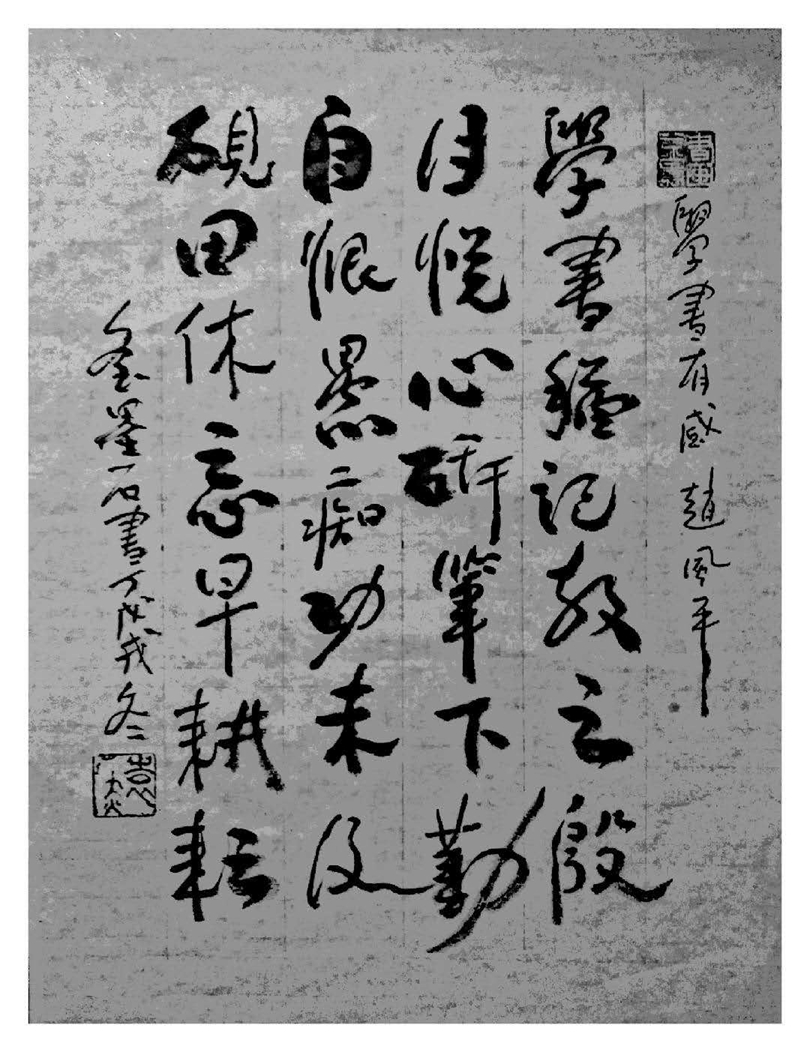 學書有感 趙風平
學書猶記教之殷
目悅心研筆下勤
自恨愚痴功未
硯田休忘早耕耘
墨石書于戊戌冬